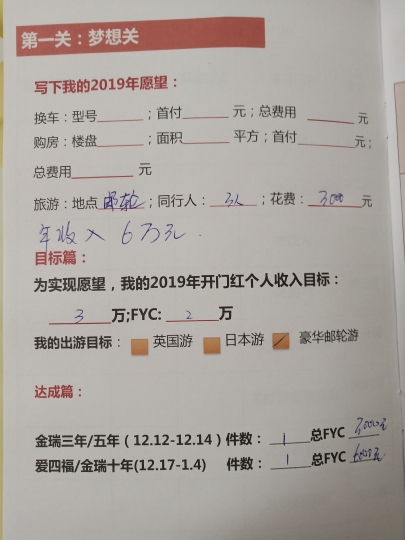 第一关：梦想关
写下我的2019年愿望：
换车：型号______；首付______元；总费用______元
购房：楼盘______；面积______平方；首付______元；
总费用______元
旅游：地点邮轮；同行人：3人；花费：3000元
年收入6万元.
目标篇：
为实现愿望，我的2019年开门红个人收入目标：
3万;FYC: 2万
我的出游目标： 英国游 日本游 豪华邮轮游
达成篇：
金瑞三年/五年（12.12-12.14）件数： 1 总FYC 3000元
爱四福/金瑞十年(12.17-1.4) 件数： 1 总FYC 6000元